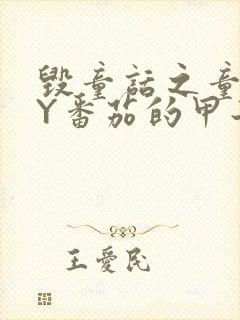 毁童话之童
Y番茄的甲
王爱民